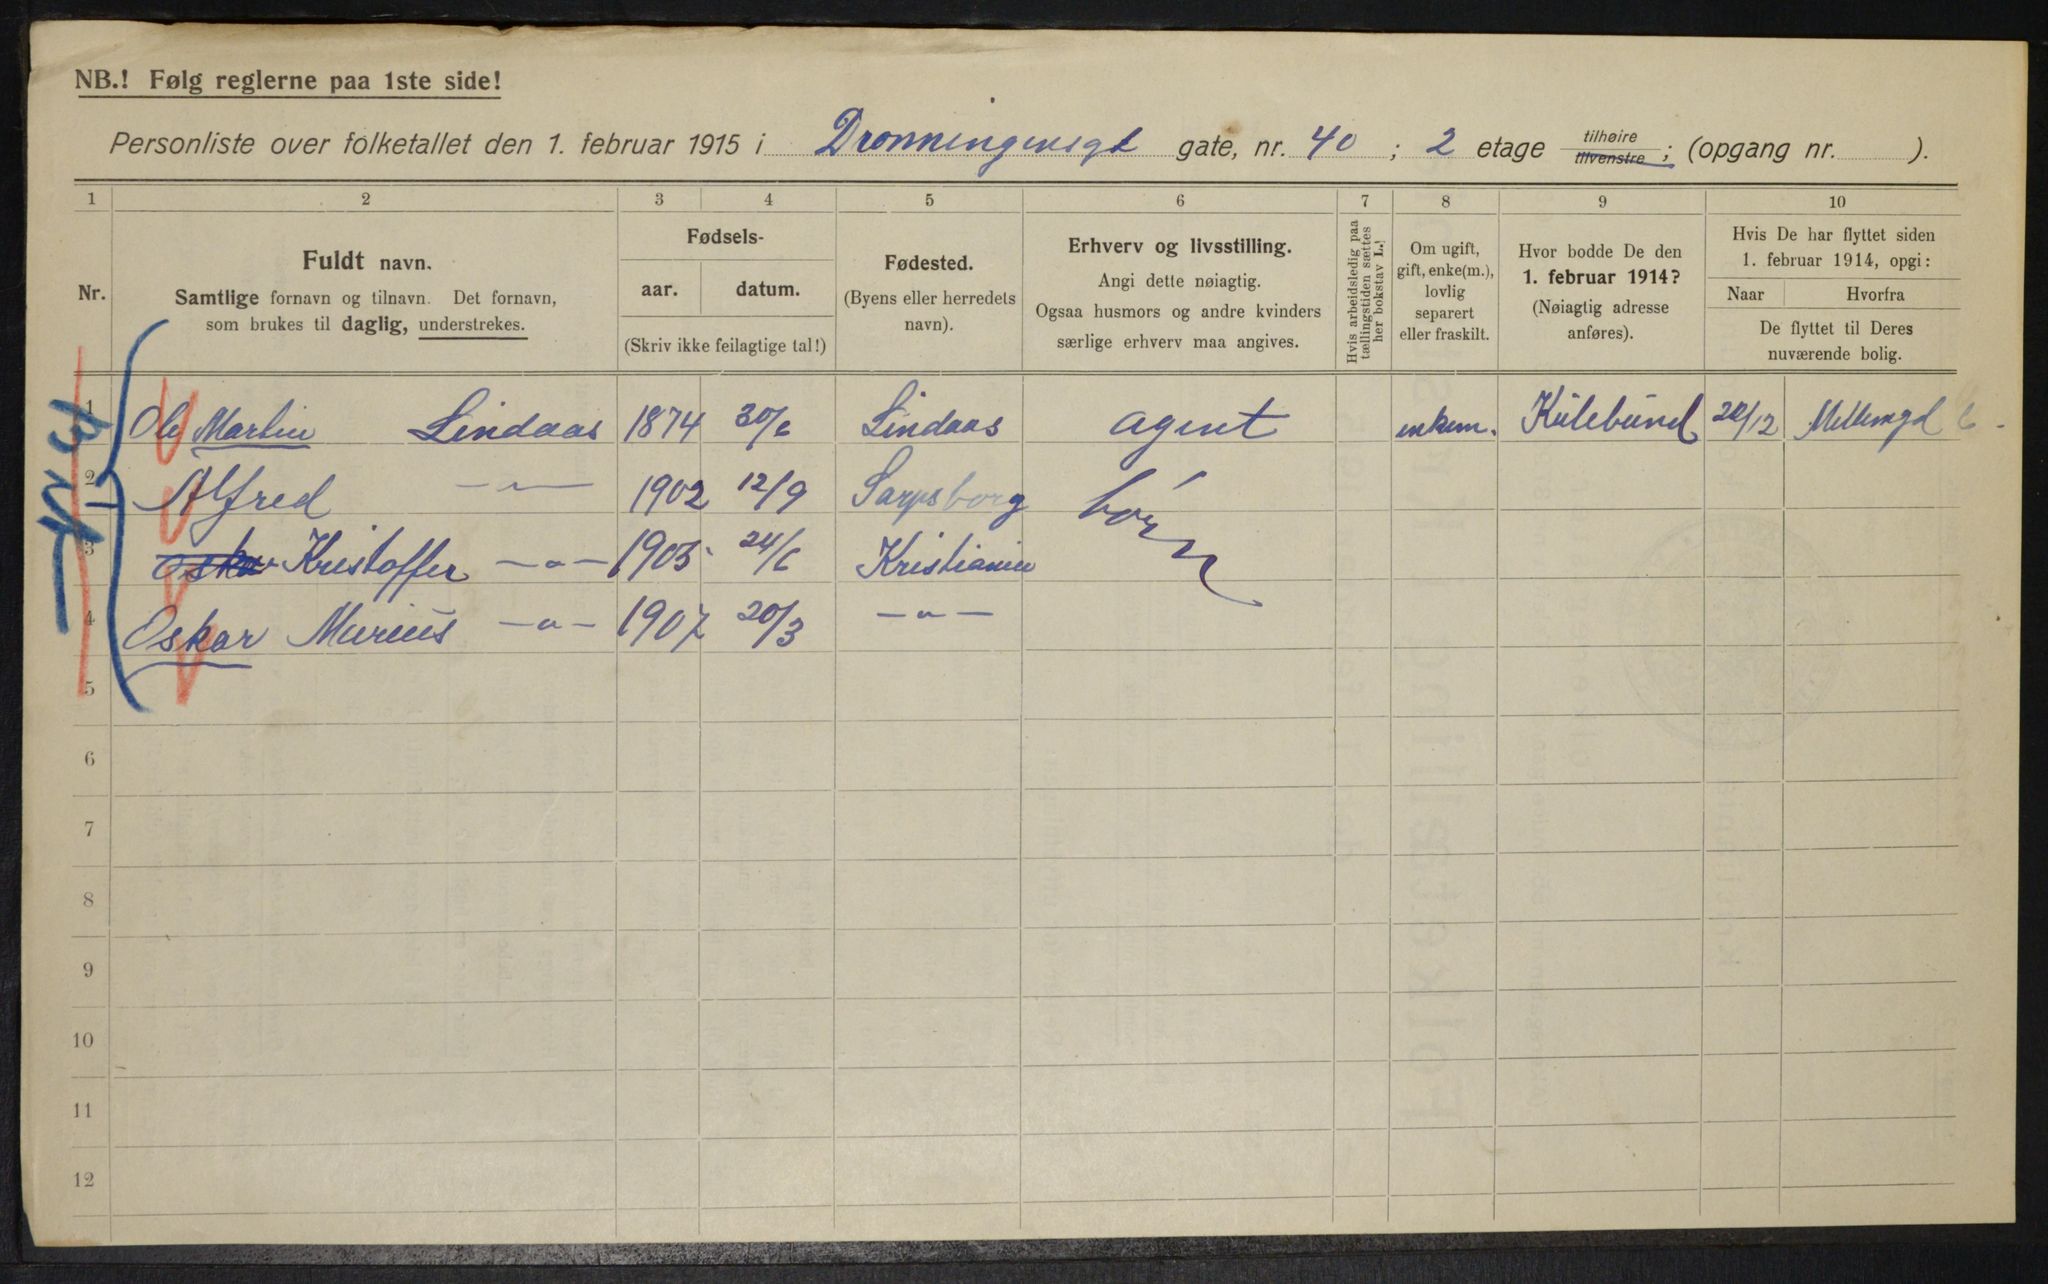 NB.! Følg reglerne paa 1ste side!
Personliste over folketallet den 1. februar 1915 i Dronningensgt gate, nr. 40 ; 2 etage tilhøire tilvenstre ; (opgang nr. ).
1 2 3 4 5 6 7 8 9 10
Nr.
Fuldt navn.
Samtlige fornavn og tilnavn. Det fornavn,
som brukes til daglig, understrekes.
Fødsels-
aar. datum.
(Skriv ikke feilagtige tal!)
Fødested.
(Byens eller herredets
navn).
Erhverv og livsstilling.
Angi dette nøiagtig.
Ogsaa husmors og andre kvinders
særlige erhverv maa angives.
Hvis arbeidsledig paa
tællingstiden sættes
her bokstav L.
Om ugift,
gift, enke(m.),
lovlig
separert
eller fraskilt.
Hvor bodde De den
1. februar 1914?
(Nøiagtig adresse
anføres).
Hvis De har flyttet siden
1. februar 1914, opgi:
Naar Hvorfra
De flyttet til Deres
nuværende bolig.
1 Ole Martin Lindaas 1874 30/6 Lindaas agent enkem. 20/12
2 Alfred —"— 1902 12/9 Sarpsborg børn
3 Oskar Kristoffer —"— 1905 24/6 Kristiania
4 Oskar Marius —"— 1907 20/3 —"—
5
6
7
8
9
10
11
12